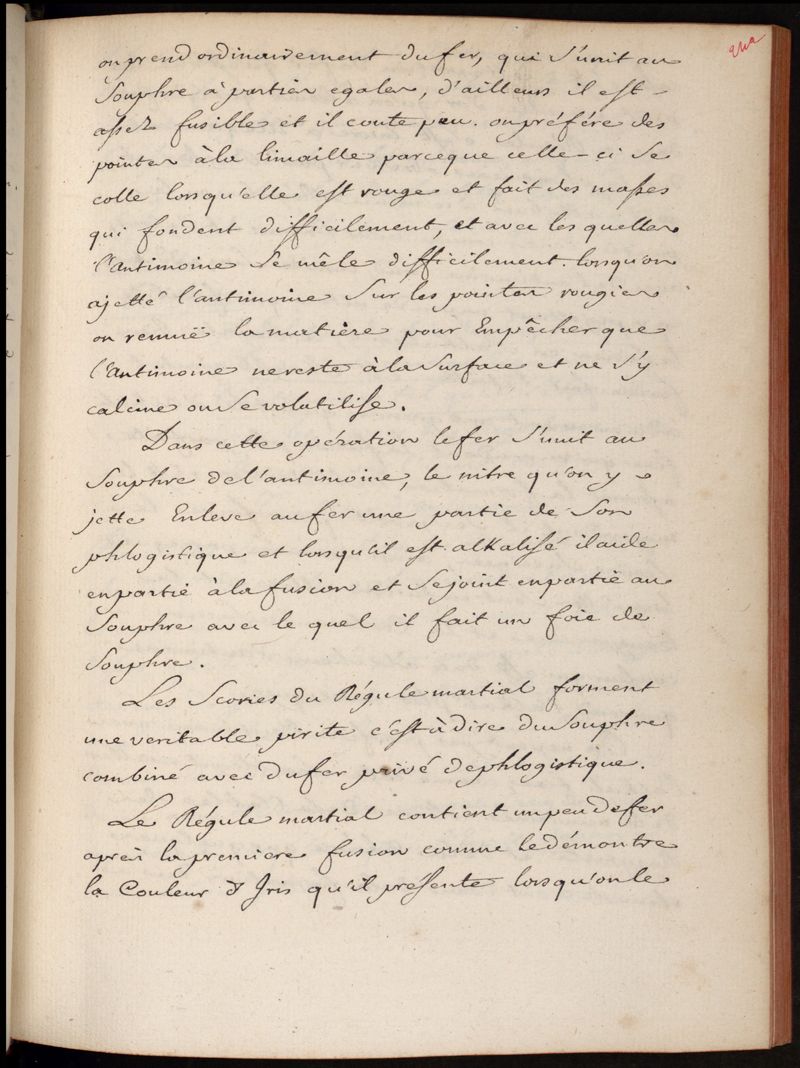 on prend ordinairement du fer, qui s'unit au
Souphre à parties egales, d'ailleurs il est -
assez fusible et il coute peu. on préfére des
pointes à la limaille parceque celle-ci se
colle lorsqu'elle est rouge et fait des masses
qui fondent difficilement, et avec les quelles
l'antimoine se mêle difficilement. lorsqu'on
a jetté l'antimoine sur les pointes rougies
on remuë la matière pour Empêcher que
l'antimoine ne reste à la surface et ne s'y
calcine ou se volatilise.
Dans cette opération le fer s'unit au
Souphre de l'antimoine, le nitre qu'on y
jette Enleve au fer une partie de son
phlogistique et lorsqu'il est alkalisé il aide
en partie à la fusion et se joint en partie au
Souphre avec le quel il fait un foie de
Souphre.
Les Scories du Régule martial forment
une veritable pirite c'est à dire du Souphre
combiné avec du fer privé de phlogistique.
Le Régule martial contient un peu de fer
après la premiere fusion comme le démontre
la Couleur d'Iris qu'il présente lorsqu'on le